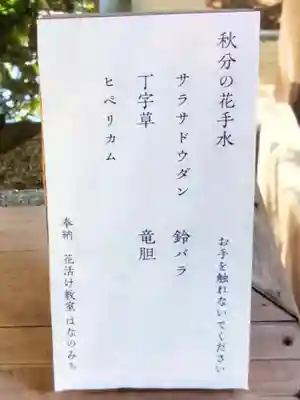 秋分の花手水
お手を触れないでください
サラサドウダン　鈴バラ
丁字草　竜胆
ヒペリカム
奉納　花活け教室 はなのみち